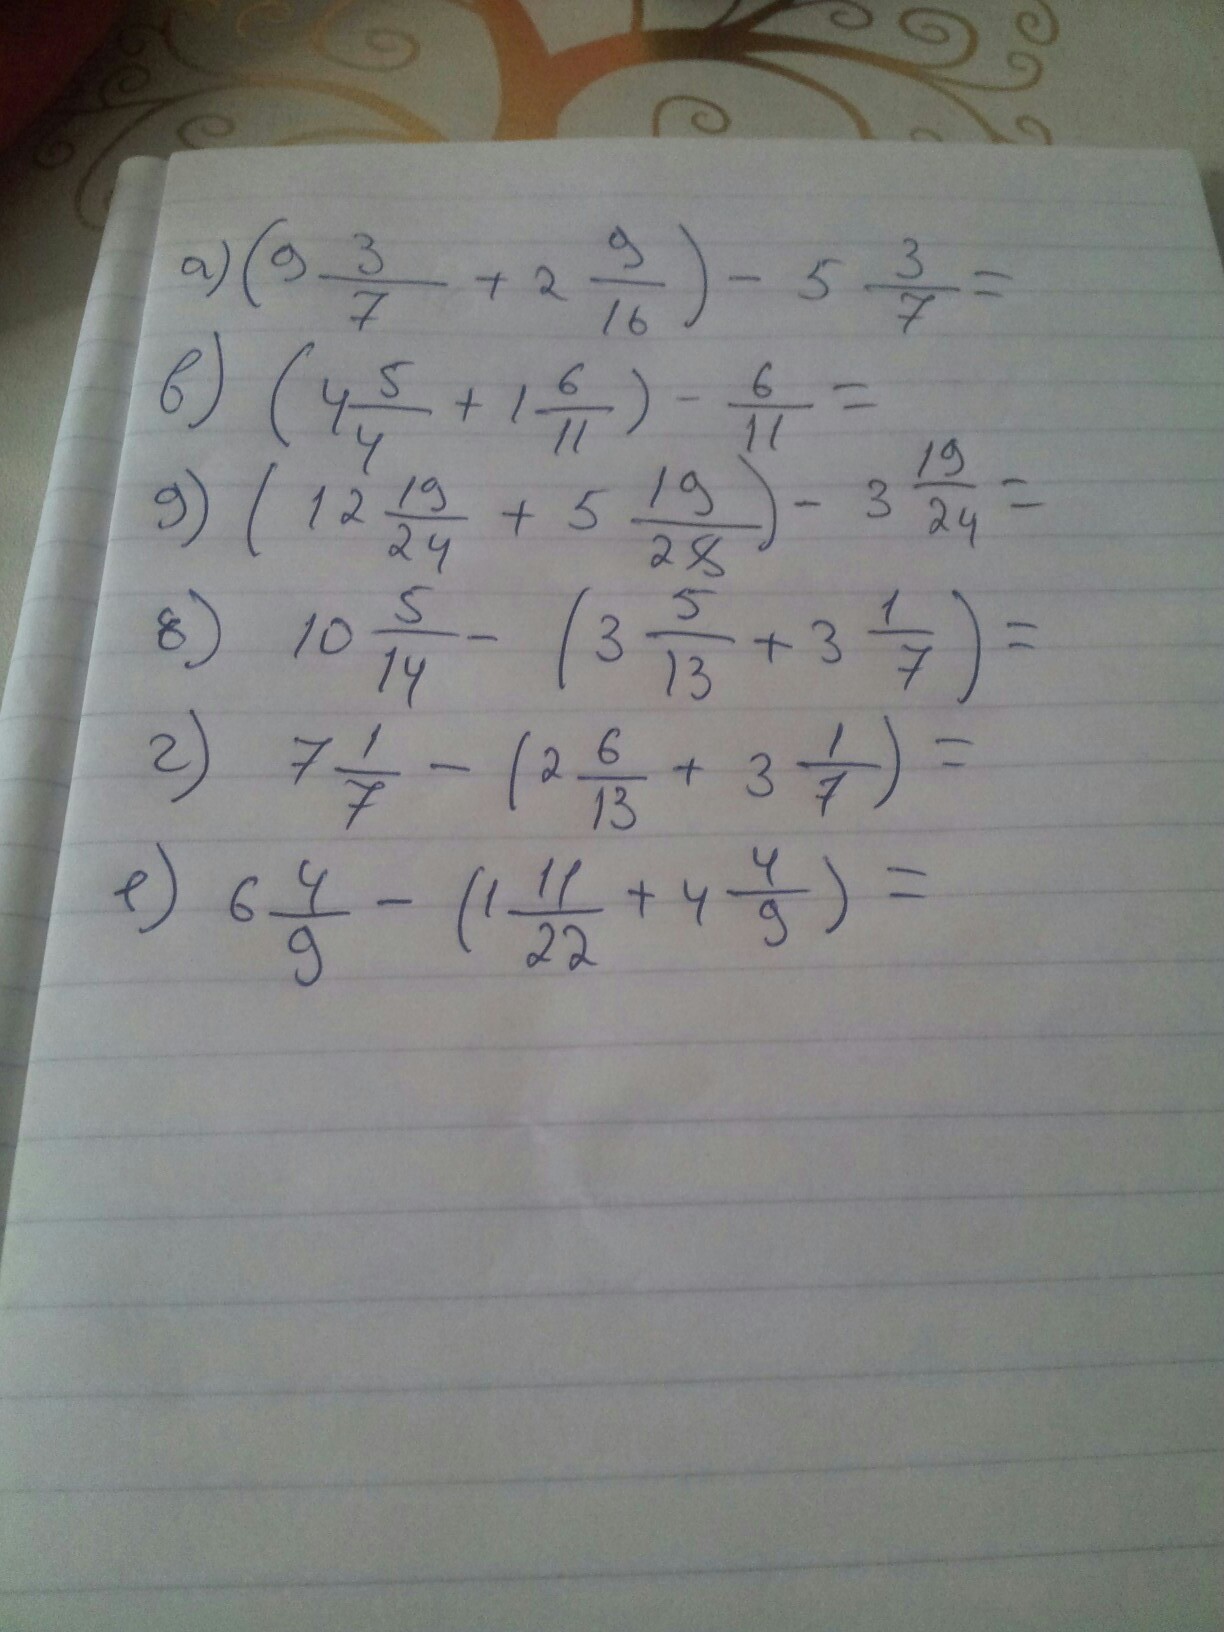 а) (9 3/7 + 2 9/16) - 5 3/7 =
в) (4 5/4 + 1 6/11) - 6/11 =
д) (12 19/24 + 5 19/28) - 3 19/24 =
б) 10 5/14 - (3 5/13 + 3 1/7) =
г) 7 1/7 - (2 6/13 + 3 1/7) =
е) 6 4/9 - (1 11/22 + 4 4/9) =